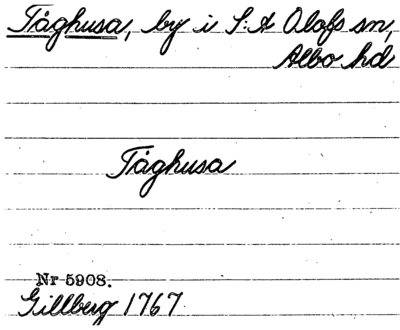 Tåghusa, by i S:t Olofs sn,
Albo hd
Tåghusa
Nr 5908.
Gillberg 1767